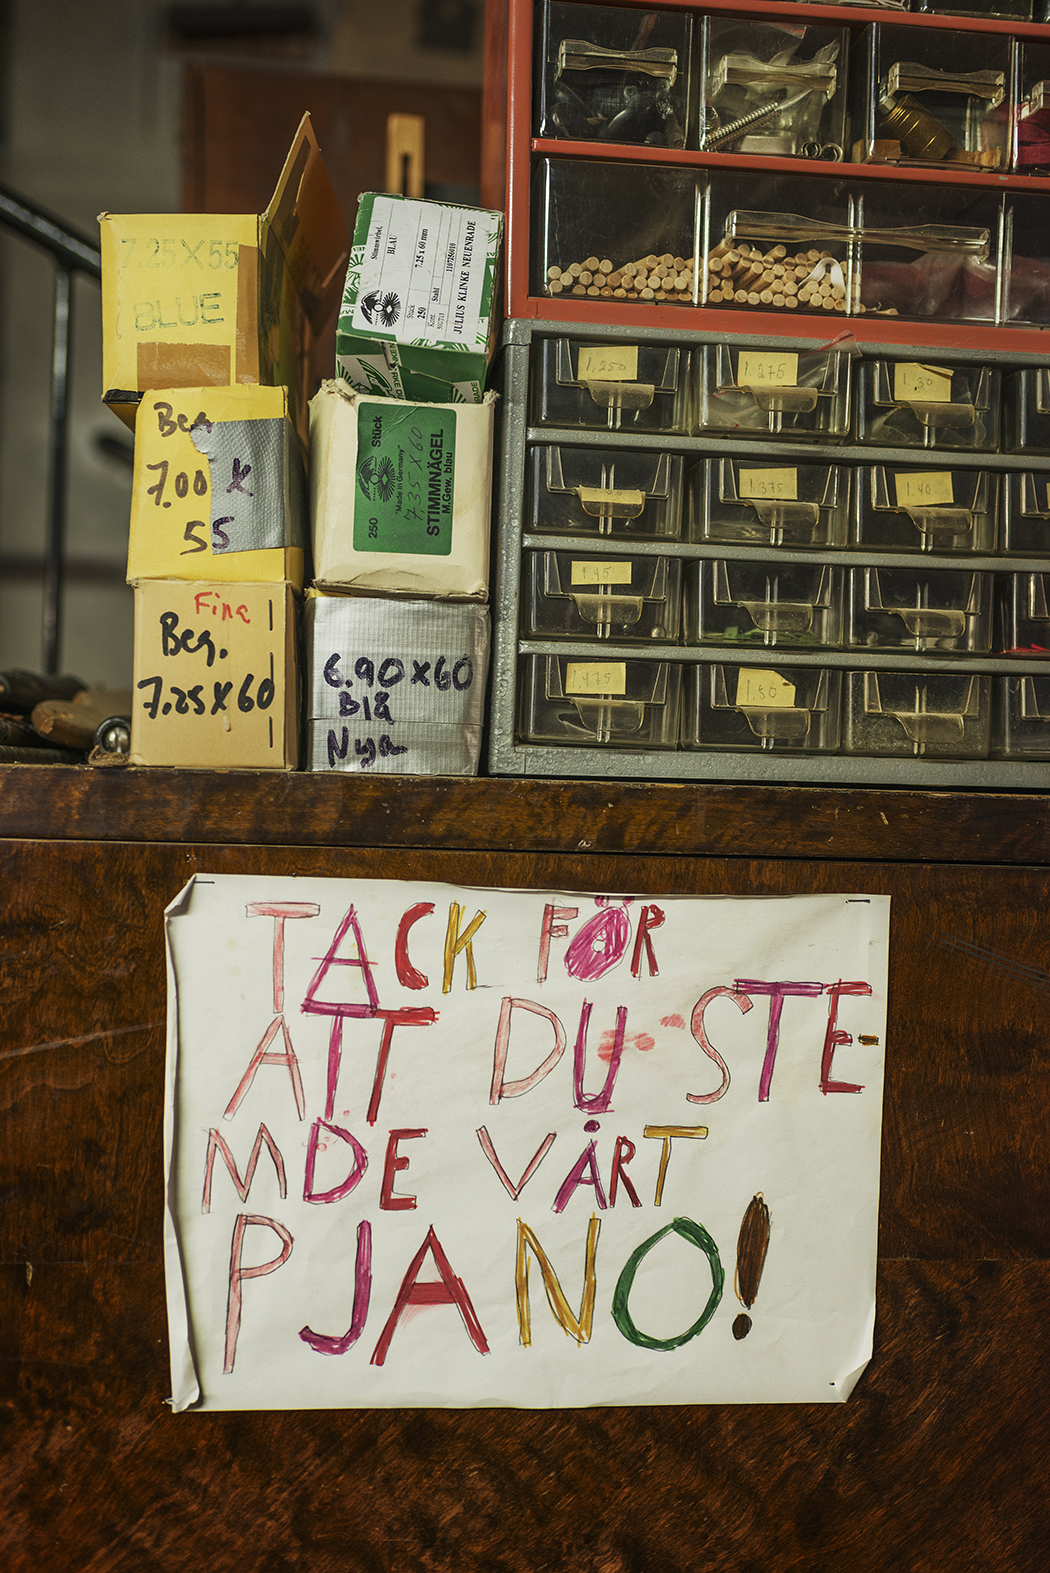 7.25X55
BLUE
Stimmwirbel,
BLAU
7,25 x 60 mm
Stück
250
Stahl
1107256010
JULIUS KLINKE NEUENRADE
Beg
7.00 X
55
250
Stück
"Made in Germany"
7,35 X 60
STIMMNÄGEL
M.Gew. blau
Fina
Beg.
7.25X60
6.90X60
Blå
Nya
1,250
1.275
1.30
1.375
1.40
1.45
1.475
1.50
TACK FÖR
ATT DU STE-
MDE VÅRT
PJANO!